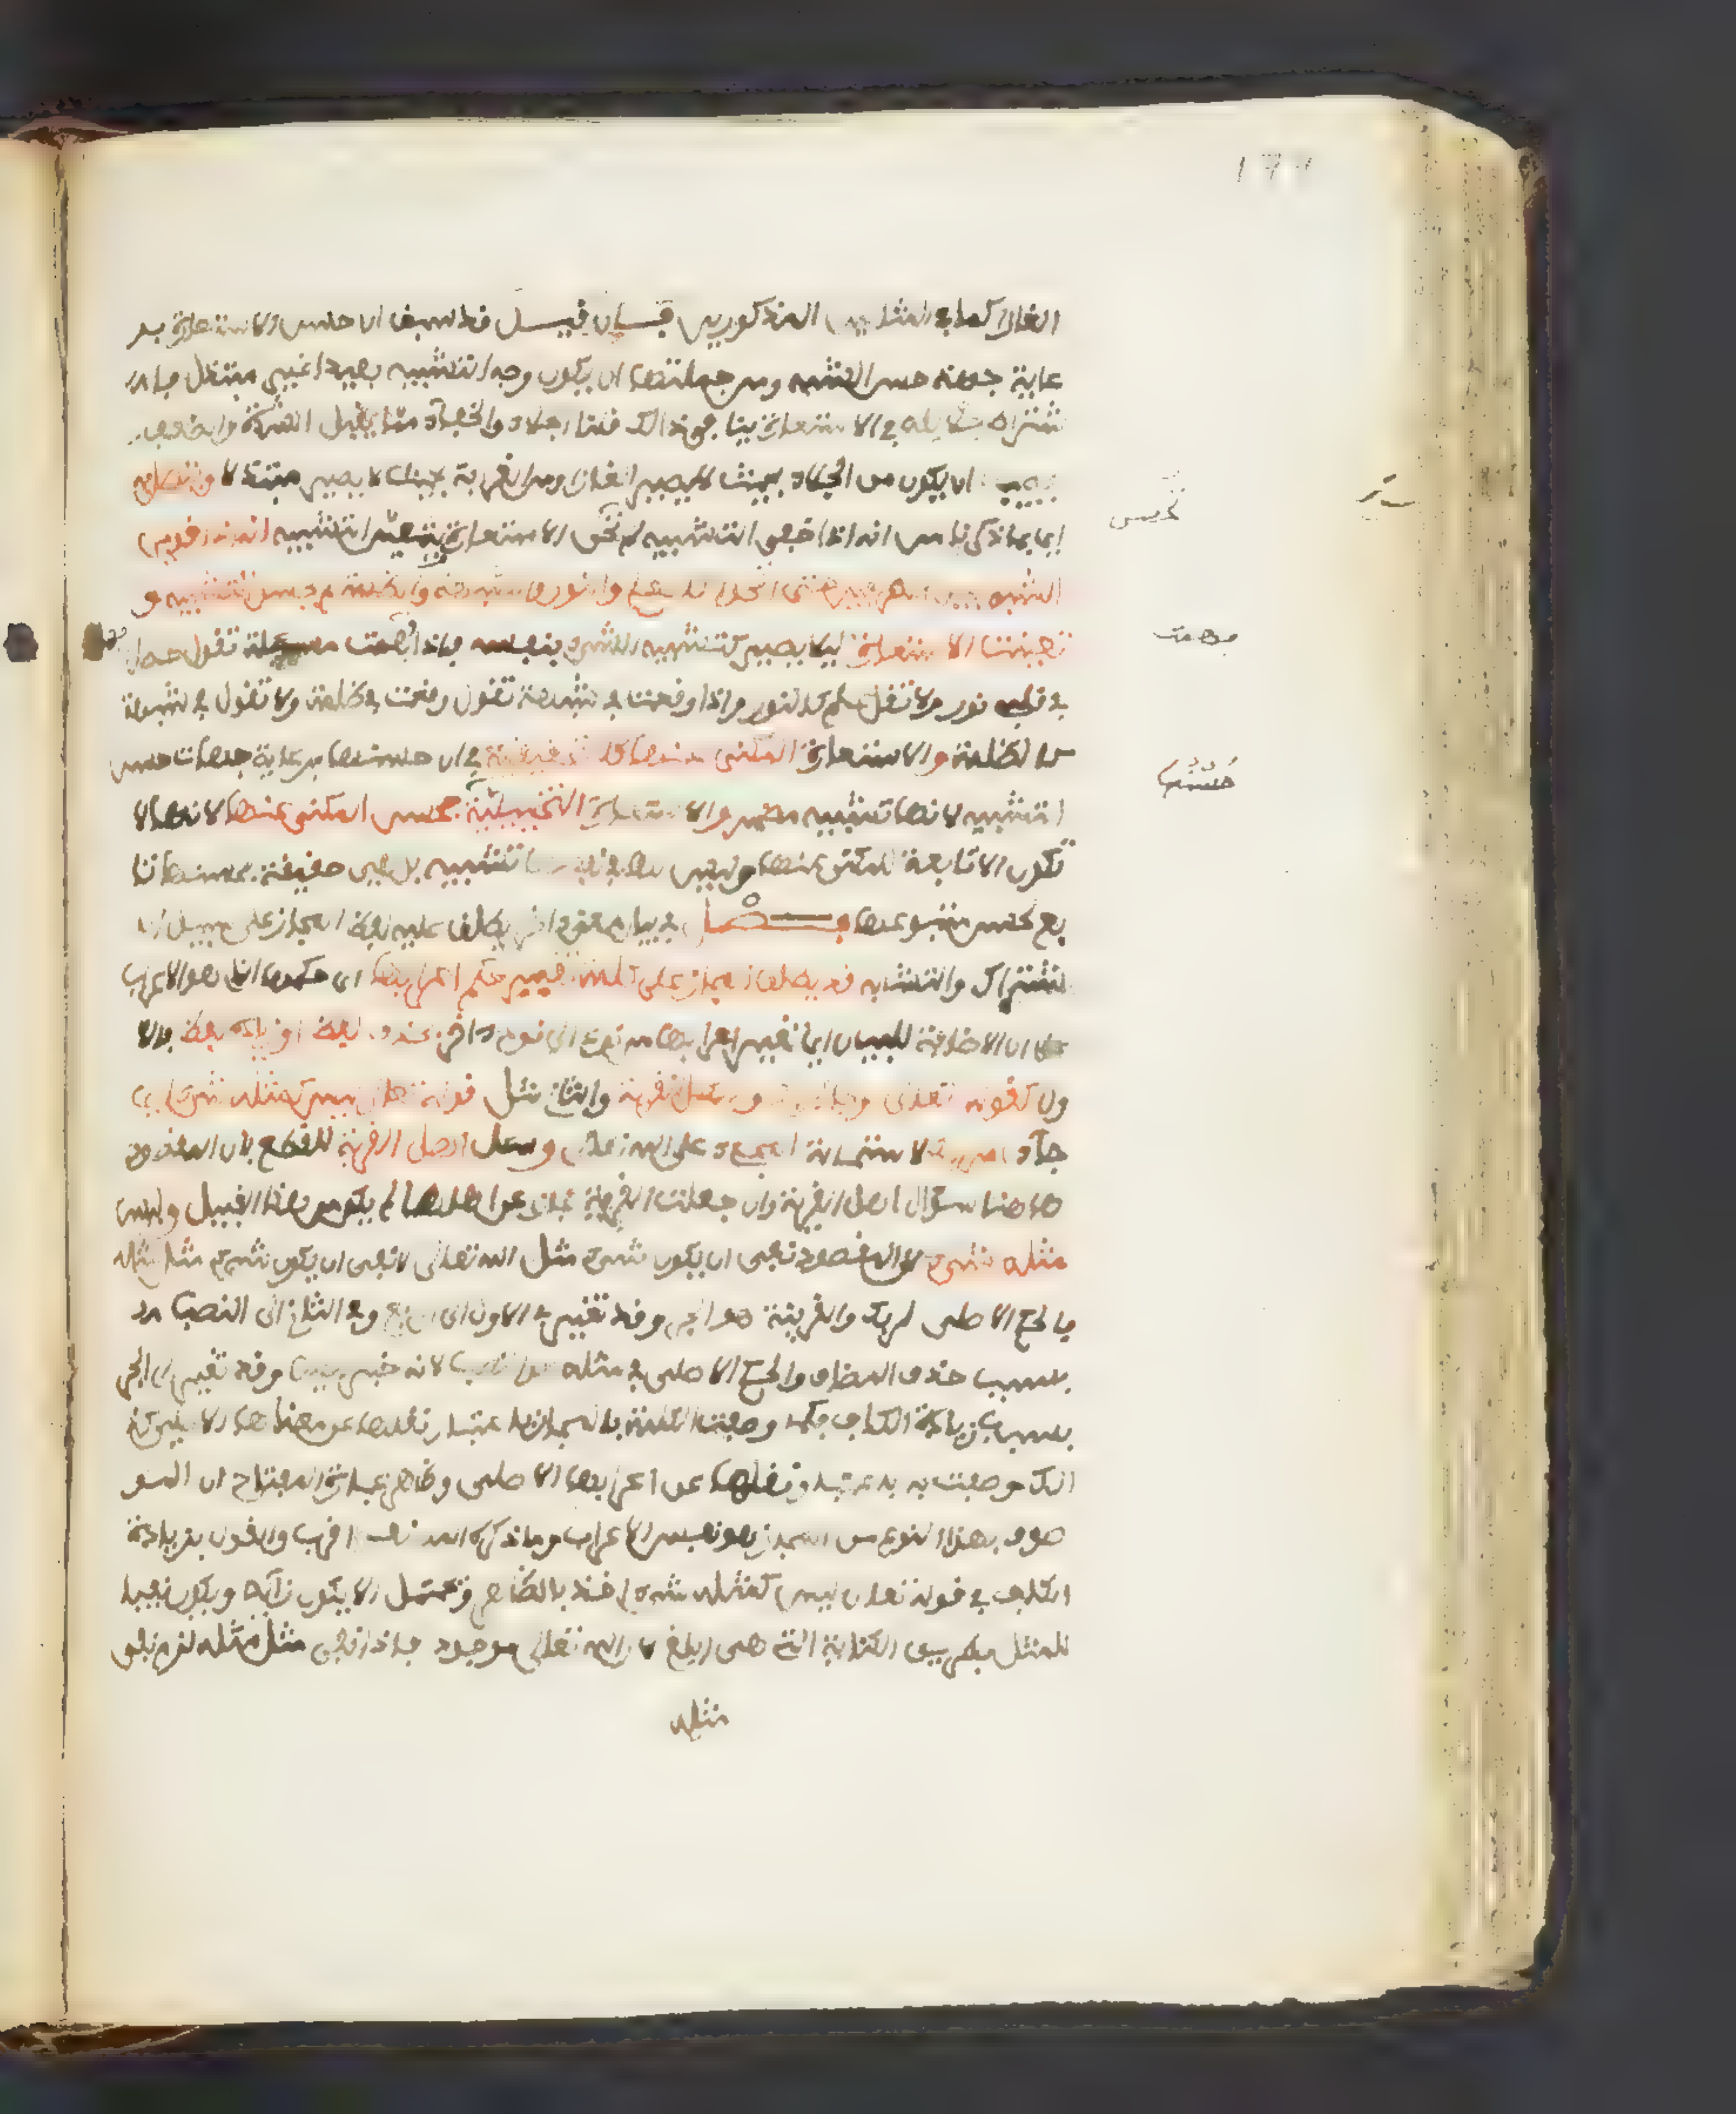 الغازا كما في المثالين المذكورين فــان قيــل قد سبق ان حسن الاستعارة بر
عاية جهة حسن التشبيه ومن جملتها ان يكون وجه التشبيه بعيدا غير مبتذل فا
شتراط جلائه في الاستعارة ينافي ذالك قلنا الجلاء والخفاء مما يقبل الشدة والضعف
فيجب ان يكون من الجلاء بحيث لا يصير الغازا ومن الغرابة بحيث لا يصير مبتذلا ويتصل به
اي بما ذكرنا من انه اذا خفي التشبيه لم تحسن الاستعارة ويتعين التشبيه انه اذا قوي
الشبه بين الطرفين حتى اتحدا كالعلم والنور والشبهة والظلمة لم يحسن التشبيه و
تعينت الاستعارة ليلا يصير كتشبيه الشيء بنفسه فاذا فهمت مسئلة تقول حصل
في قلبي نور ولا تقل علم كالنور واذا وقعت في شبهة تقول وقعت في ظلمة ولا تقول في شبهة
كالظلمة والاستعارة المكنى عنها كالتحقيقية في ان حسنها برعاية جهات حسن
التشبيه لانها تشبيه مضمر والاستعارة التخييلية حسن المكنى عنها لانها لا
تكون الا تابعة للمكنى عنها وليس لها في نفسها تشبيه بل هي حقيقة فحسنها تا
بع لحسن متبوعها فــــصــل في بيان معنى اخر يطلق عليه لفظ المجاز على سبيل الا
شتراك والتشابه قد يطلق المجاز على كلمة تغير حكم اعرابها اي حكمها الذي هو الاعراب
على ان الاضافة للبيان اي تغير اعرابها من نوع الى نوع اخر بحذف لفظ او زيادة لفظ فالا
ول كقوله تعلى وجاء ربك وسئل القرية والثاني مثل قوله تعلى ليس كمثله شيء اي
جاء امر ربك لاستحالة المجيء على الله تعلى وسئل اهل القرية للقطع بان المقصود
ها هنا سؤال اهل القرية وان جعلت القرية مجازا عن اهلها لم يكن من هذا القبيل وليس
مثله شيء لان المقصود نفي ان يكون شيء مثل الله تعلى لا نفي ان يكون شيء مثل مثله
فالحكم الاصلي لربك والقرية هو الجر وقد تغير في الاول الى الرفع وفي الثاني الى النصب
بسبب حذف المضاف والحكم الاصلي في مثله هو النصب لانه خبر ليس وقد تغير الى الجر
بسبب زيادة الكاف فكما وصفت الكلمة بالمجاز باعتبار نقلها عن معناها الاصلي كذ
الك وصفت به باعتبار نقلها عن اعرابها الاصلي وظاهر عبارة المفتاح ان المو
صوف بهذا النوع من المجاز هو نفس الاعراب وما ذكره المصنف اقرب والقول بزيادة
الكاف في قوله تعلى ليس كمثله شيء اخذ بالظاهر ويحتمل الا يكون زائدا ويكون نفيا
للمثل بطريق الكناية التي هي ابلغ لان الله تعلى موجود فاذا نفي مثل مثله لزم نفي
مثله
تحسن
فهمت
حسنها